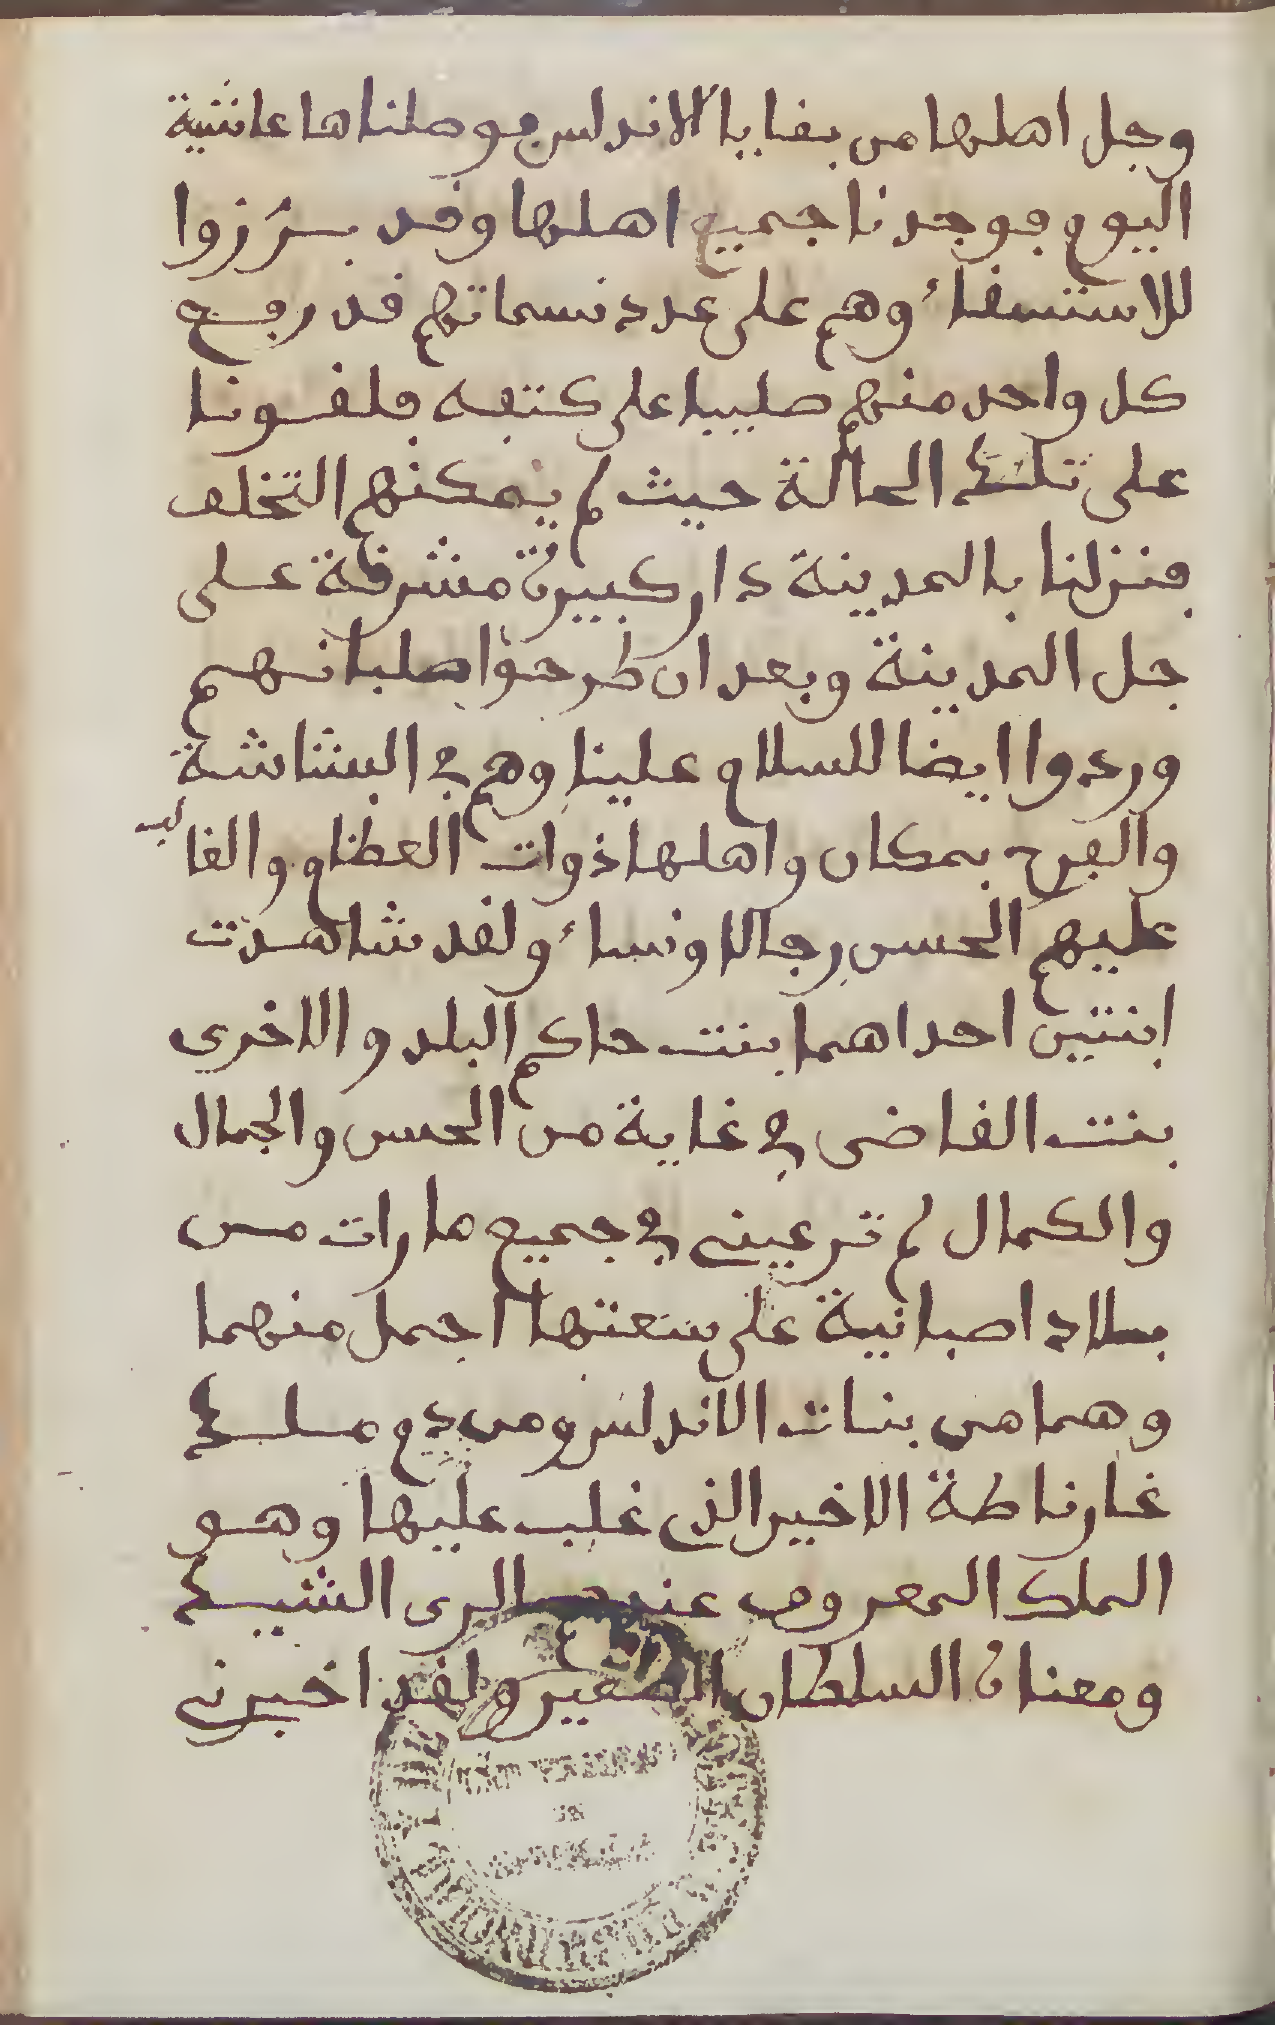 وجل اهلها من بقايا الاندلس فوصلناها عاشية
اليوم فوجدنا جميع اهلها وقد برزوا
للاستسقاء وهم على عدد نسماتهم قد رفع
كل واحد منهم صليبا على كتفه فلقونا
على تلك الحالة حيث لم يمكنهم التخلف
فنزلنا بالمدينة دار كبيرة مشرفة على
جل المدينة وبعد ان طرحوا صلبانهم
وردوا ايضا للسلام علينا وهم في البشاشة
والفرح بمكان واهلها ذوات العظام والغالب
عليهم الحسن رجالا ونساء ولقد شاهدت
ابنتين احداهما بنت حاكم البلد والاخرى
بنت القاضي في غاية من الحسن والجمال
والكمال لم تر عيني في جميع ما رات من
بلاد اصبانية على سعتها اجمل منهما
وهما من بنات الاندلس ومن دم ملك
غارناطة الاخير الذي غلب عليها وهو
الملك المعروف عندهم الري الشيخ
ومعناه السلطان الصغير ولقد اخبرني